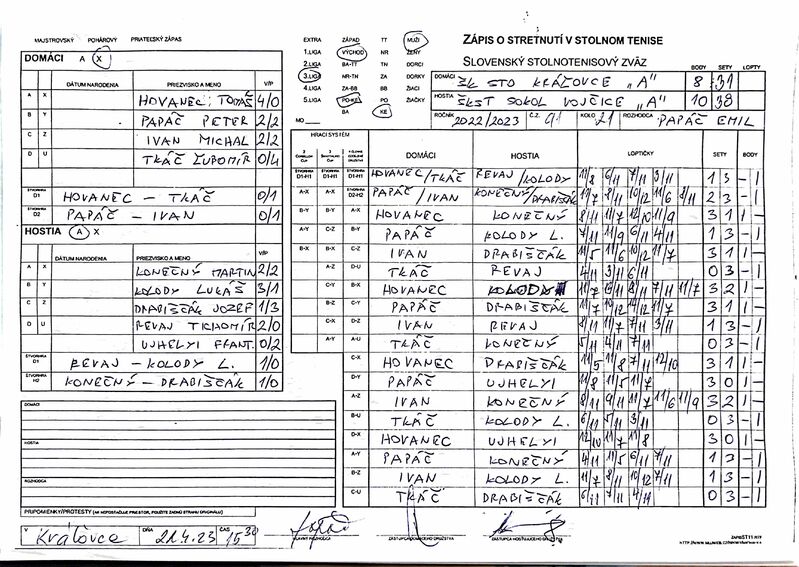 MAJSTROVSKÝ POHÁROVÝ PRIATEĽSKÝ ZÁPAS
DOMÁCI A X
DÁTUM NARODENIA PRIEZVISKO A MENO V/P
A X HOVANEC TOMÁŠ 4/0
B Y PAPÁČ PETER 2/2
C Z IVAN MICHAL 2/2
D U TKÁČ ĽUBOMÍR 0/4
ŠTVORHRA D1 HOVANEC - TKÁČ 0/1
ŠTVORHRA D2 PAPÁČ - IVAN 0/1
HOSTIA A X
DÁTUM NARODENIA PRIEZVISKO A MENO V/P
A X KONEČNÝ MARTIN 2/2
B Y KOLODY LUKÁŠ 3/1
C Z DRABIŠČÁK JOZEF 1/3
D U REVAJ TICHOMÍR 2/0
UJHELYI FRANT. 0/2
ŠTVORHRA REVAJ - KOLODY L. 1/0
ŠTVORHRA H2 KONEČNÝ - DRABIŠČÁK 1/0
DOMÁCI
HOSTIA
ROZHODCA
PRIPOMIENKY/PROTESTY (AK NEPOSTAČUJE PRIESTOR, POUŽITE ZADNÚ STRANU ORIGINÁLU)
V Kráľovce DŇA 21.4.23 ČAS 15 30
EXTRA ZÁPAD TT MUŽI
1.LIGA VÝCHOD NR ŽENY
2.LIGA BA-TT TN DORCI
3.LIGA NR-TN ZA DORKY
4.LIGA ZA-BB BB ŽIACI
5.LIGA PO-KE PO ŽIAČKY
MO BA KE
ZÁPIS O STRETNUTÍ V STOLNOM TENISE
SLOVENSKÝ STOLNOTENISOVÝ ZVÄZ BODY SETY
DOMÁCI ŠK STO KRÁĽOVCE "A" 8 31
HOSTIA ŠKST SOKOL VOJČICE "A" 10 38
ROČNÍK 2022/2023 Č.Z. 91 KOLO 21 ROZHODCA PAPÁČ EMIL
HRACÍ SYSTÉM DOMÁCI HOSTIA LOPTIČKY SETY BODY
D1-H1 D1-H1 D1-H1 HOVANEC/TKÁČ REVAJ/KOLODY 11/8 6/11 7/11 3/11 1 3 - 1
A-X A-X D2-H2 PAPÁČ/IVAN KONEČNÝ/DRABIŠČÁK 2 3 - 1
B-Y B-Y A-X HOVANEC KONEČNÝ 3 1 1 -
A-Y C-Z B-Y PAPÁČ KOLODY L. 7/11 11/9 6/11 4/11 1 3 - 1
B-X B-X C-Z IVAN DRABIŠČÁK 11/5 11/6 10/12 11/7 3 1 1 -
A-Z D-U TKÁČ REVAJ 4/11 3/11 6/11 0 3 - 1
C-Y B-X HOVANEC KOLODY 3 2 1 -
B-Z C-Y PAPÁČ DRABIŠČÁK 11/7 10/12 14/12 11/7 3 1 1 -
C-X D-Z IVAN REVAJ 8/11 11/7 7/11 3/11 1 3 - 1
A-Y A-U TKÁČ KONEČNÝ 5/11 4/11 7/11 0 3 - 1
C-X HOVANEC DRABIŠČÁK 11/5 11/8 7/11 12/10 3 1 1 -
D-Y PAPÁČ UJHELYI 11/8 11/5 11/7 3 0 1 -
A-Z IVAN KONEČNÝ 8/11 9/11 11/7 11/6 11/9 3 2 1 -
B-U TKÁČ KOLODY L. 6/11 5/11 3/11 0 3 - 1
D-X HOVANEC UJHELYI 12/10 11/7 11/8 3 0 1 -
A-Y PAPÁČ KONEČNÝ 4/11 11/5 6/11 7/11 1 3 - 1
B-Z IVAN KOLODY L. 1 3 - 1
C-U TKÁČ DRABIŠČÁK 6/11 7/11 4/11 0 3 - 1
HLAVNÝ ROZHODCA ZÁSTUPCA DOMÁCEHO DRUŽSTVA ZÁSTUPCA HOSŤUJÚCEHO DRUŽSTVA